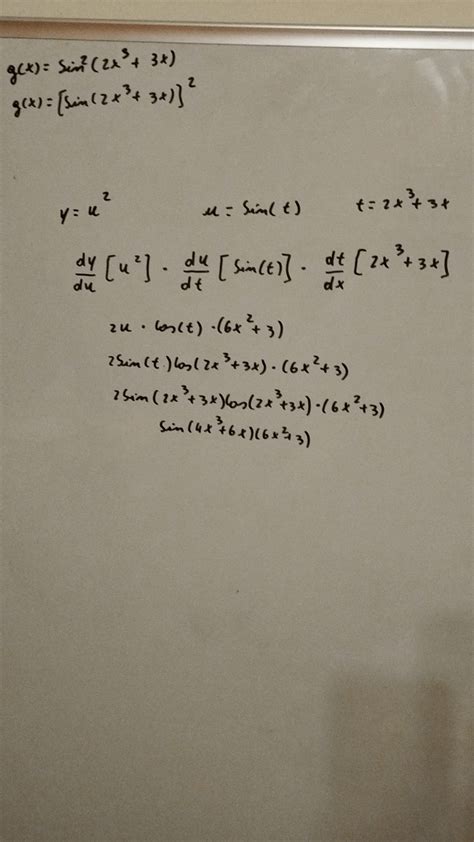 g(x) = Sin²(2x³ + 3x)
g(x) = [Sin(2x³ + 3x)]²
y = u² u = Sin(t) t = 2x³ + 3x
dy/du [u²] · du/dt [Sin(t)] · dt/dx [2x³ + 3x]
2u · Cos(t) · (6x² + 3)
2Sin(t.)Cos(2x³ + 3x) · (6x² + 3)
2Sin(2x³ + 3x)Cos(2x³ + 3x) · (6x² + 3)
Sin(4x³ + 6x)(6x² + 3)